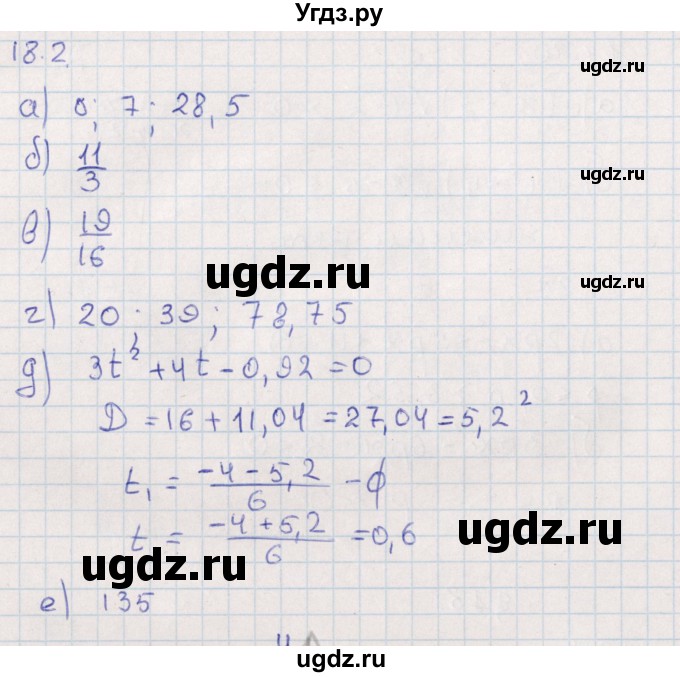 Угдз.ру
18.2.
ugdz.ru
а) 0; 7; 28,5
б) 11/3
ugdz.ru
в) 19/16
ugdz.ru
ugdz.ru
г) 20; 39; 78,75
д) 3t² + 4t - 0,92 = 0
ugdz.ru
D = 16 + 11,04 = 27,04 = 5,2²
t₁ = (-4 - 5,2)/6 - ϕ
t = (-4 + 5,2)/6 = 0,6
ugdz.ru
ugdz.ru
е) 135
ugdz.ru
ugdz.ru